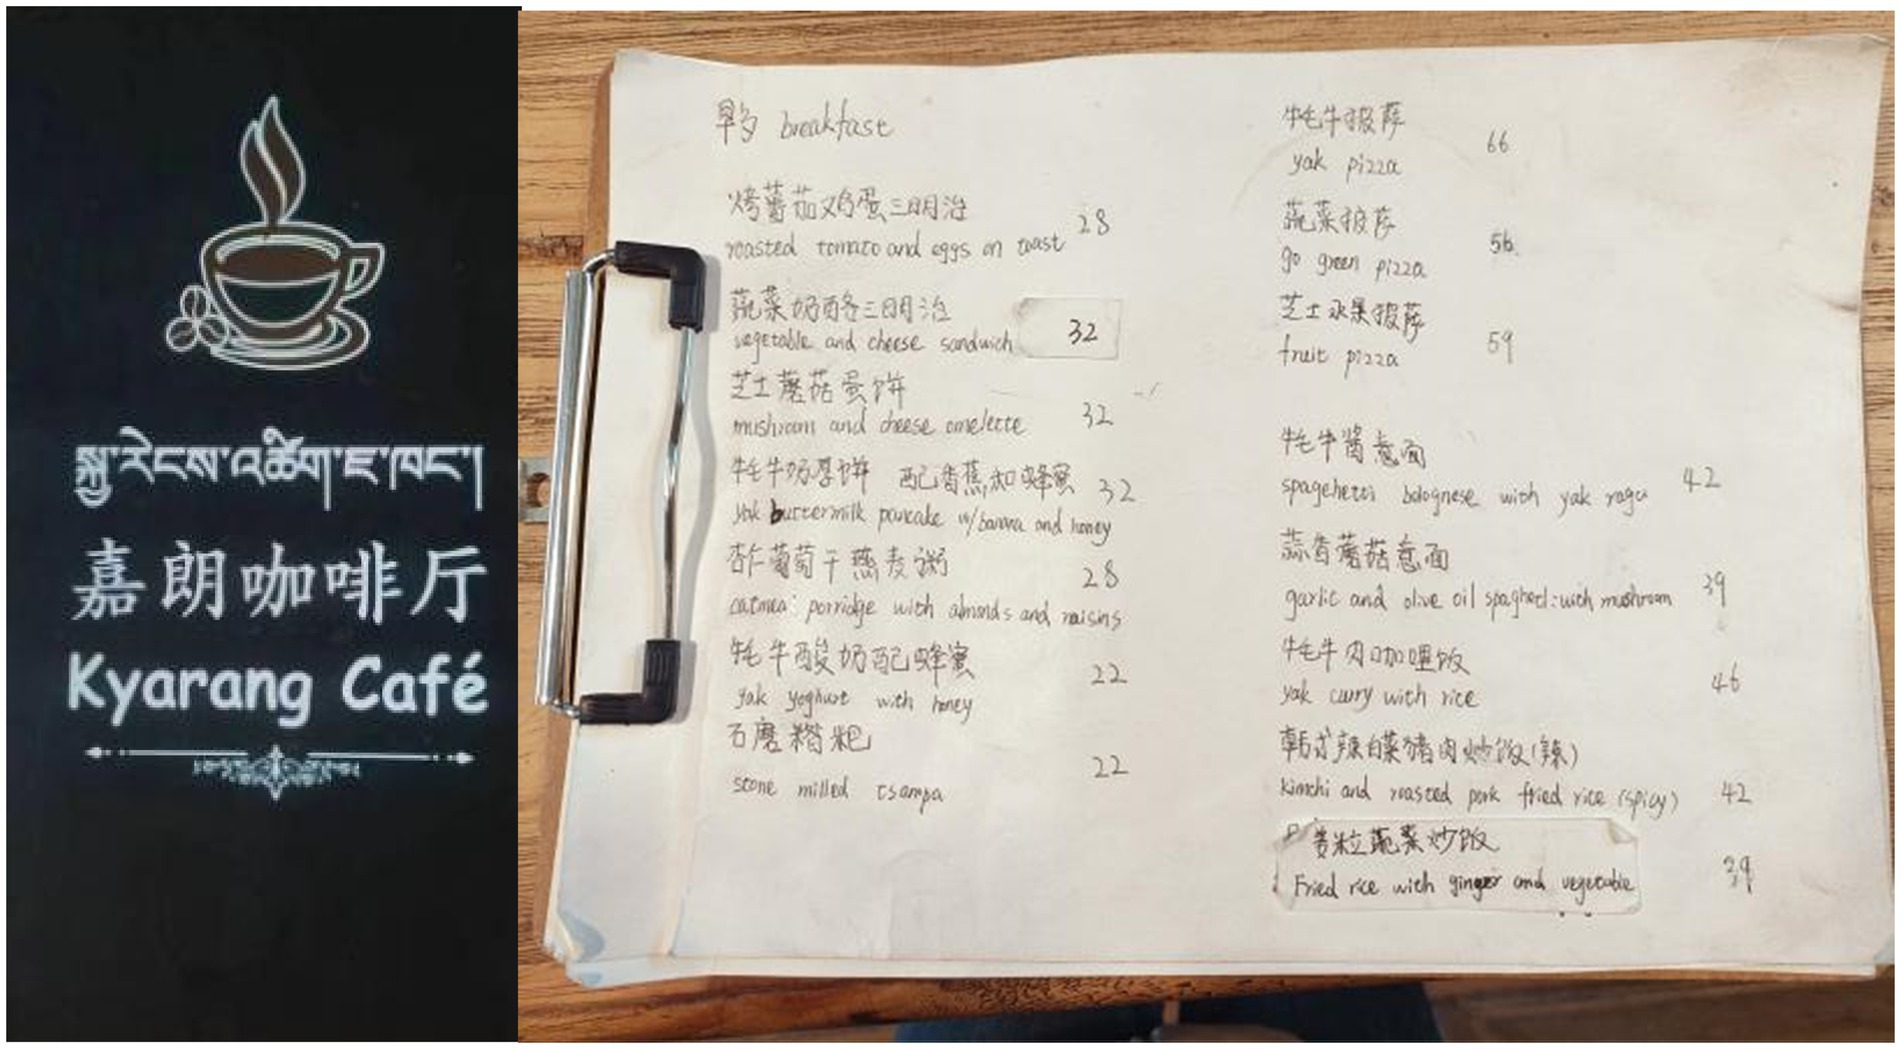 སྐྱ་རེངས་འཚིག་ཇ་ཁང་།
嘉朗咖啡厅
Kyarang Café
早多 breakfast
烤蕃茄鸡蛋三明治
roasted tomato and eggs on toast 28
蔬菜奶酪三明治
vegetable and cheese sandwich 32
芝士蘑菇蛋饼
mushroom and cheese omelette 32
牦牛奶厚饼 配香蕉和蜂蜜 32
yak buttermilk pancake w/banana and honey
杏仁葡萄干燕麦粥 28
oatmeal porridge with almonds and raisins
牦牛酸奶配蜂蜜
yak yoghurt with honey 22
石磨糌粑
stone milled tsampa 22
牦牛披萨
yak pizza 66
蔬菜披萨
go green pizza 56
芝士水果披萨
fruit pizza 59
牦牛酱意面
spagehetti bolognese with yak ragu 42
蒜香蘑菇意面
garlic and olive oil spaghetti with mushroom 39
牦牛肉咖喱饭
yak curry with rice 46
韩式辣白菜猪肉炒饭(辣)
kimchi and roasted pork fried rice (spicy) 42
姜粒蔬菜炒饭
Fried rice with ginger and vegetable 39